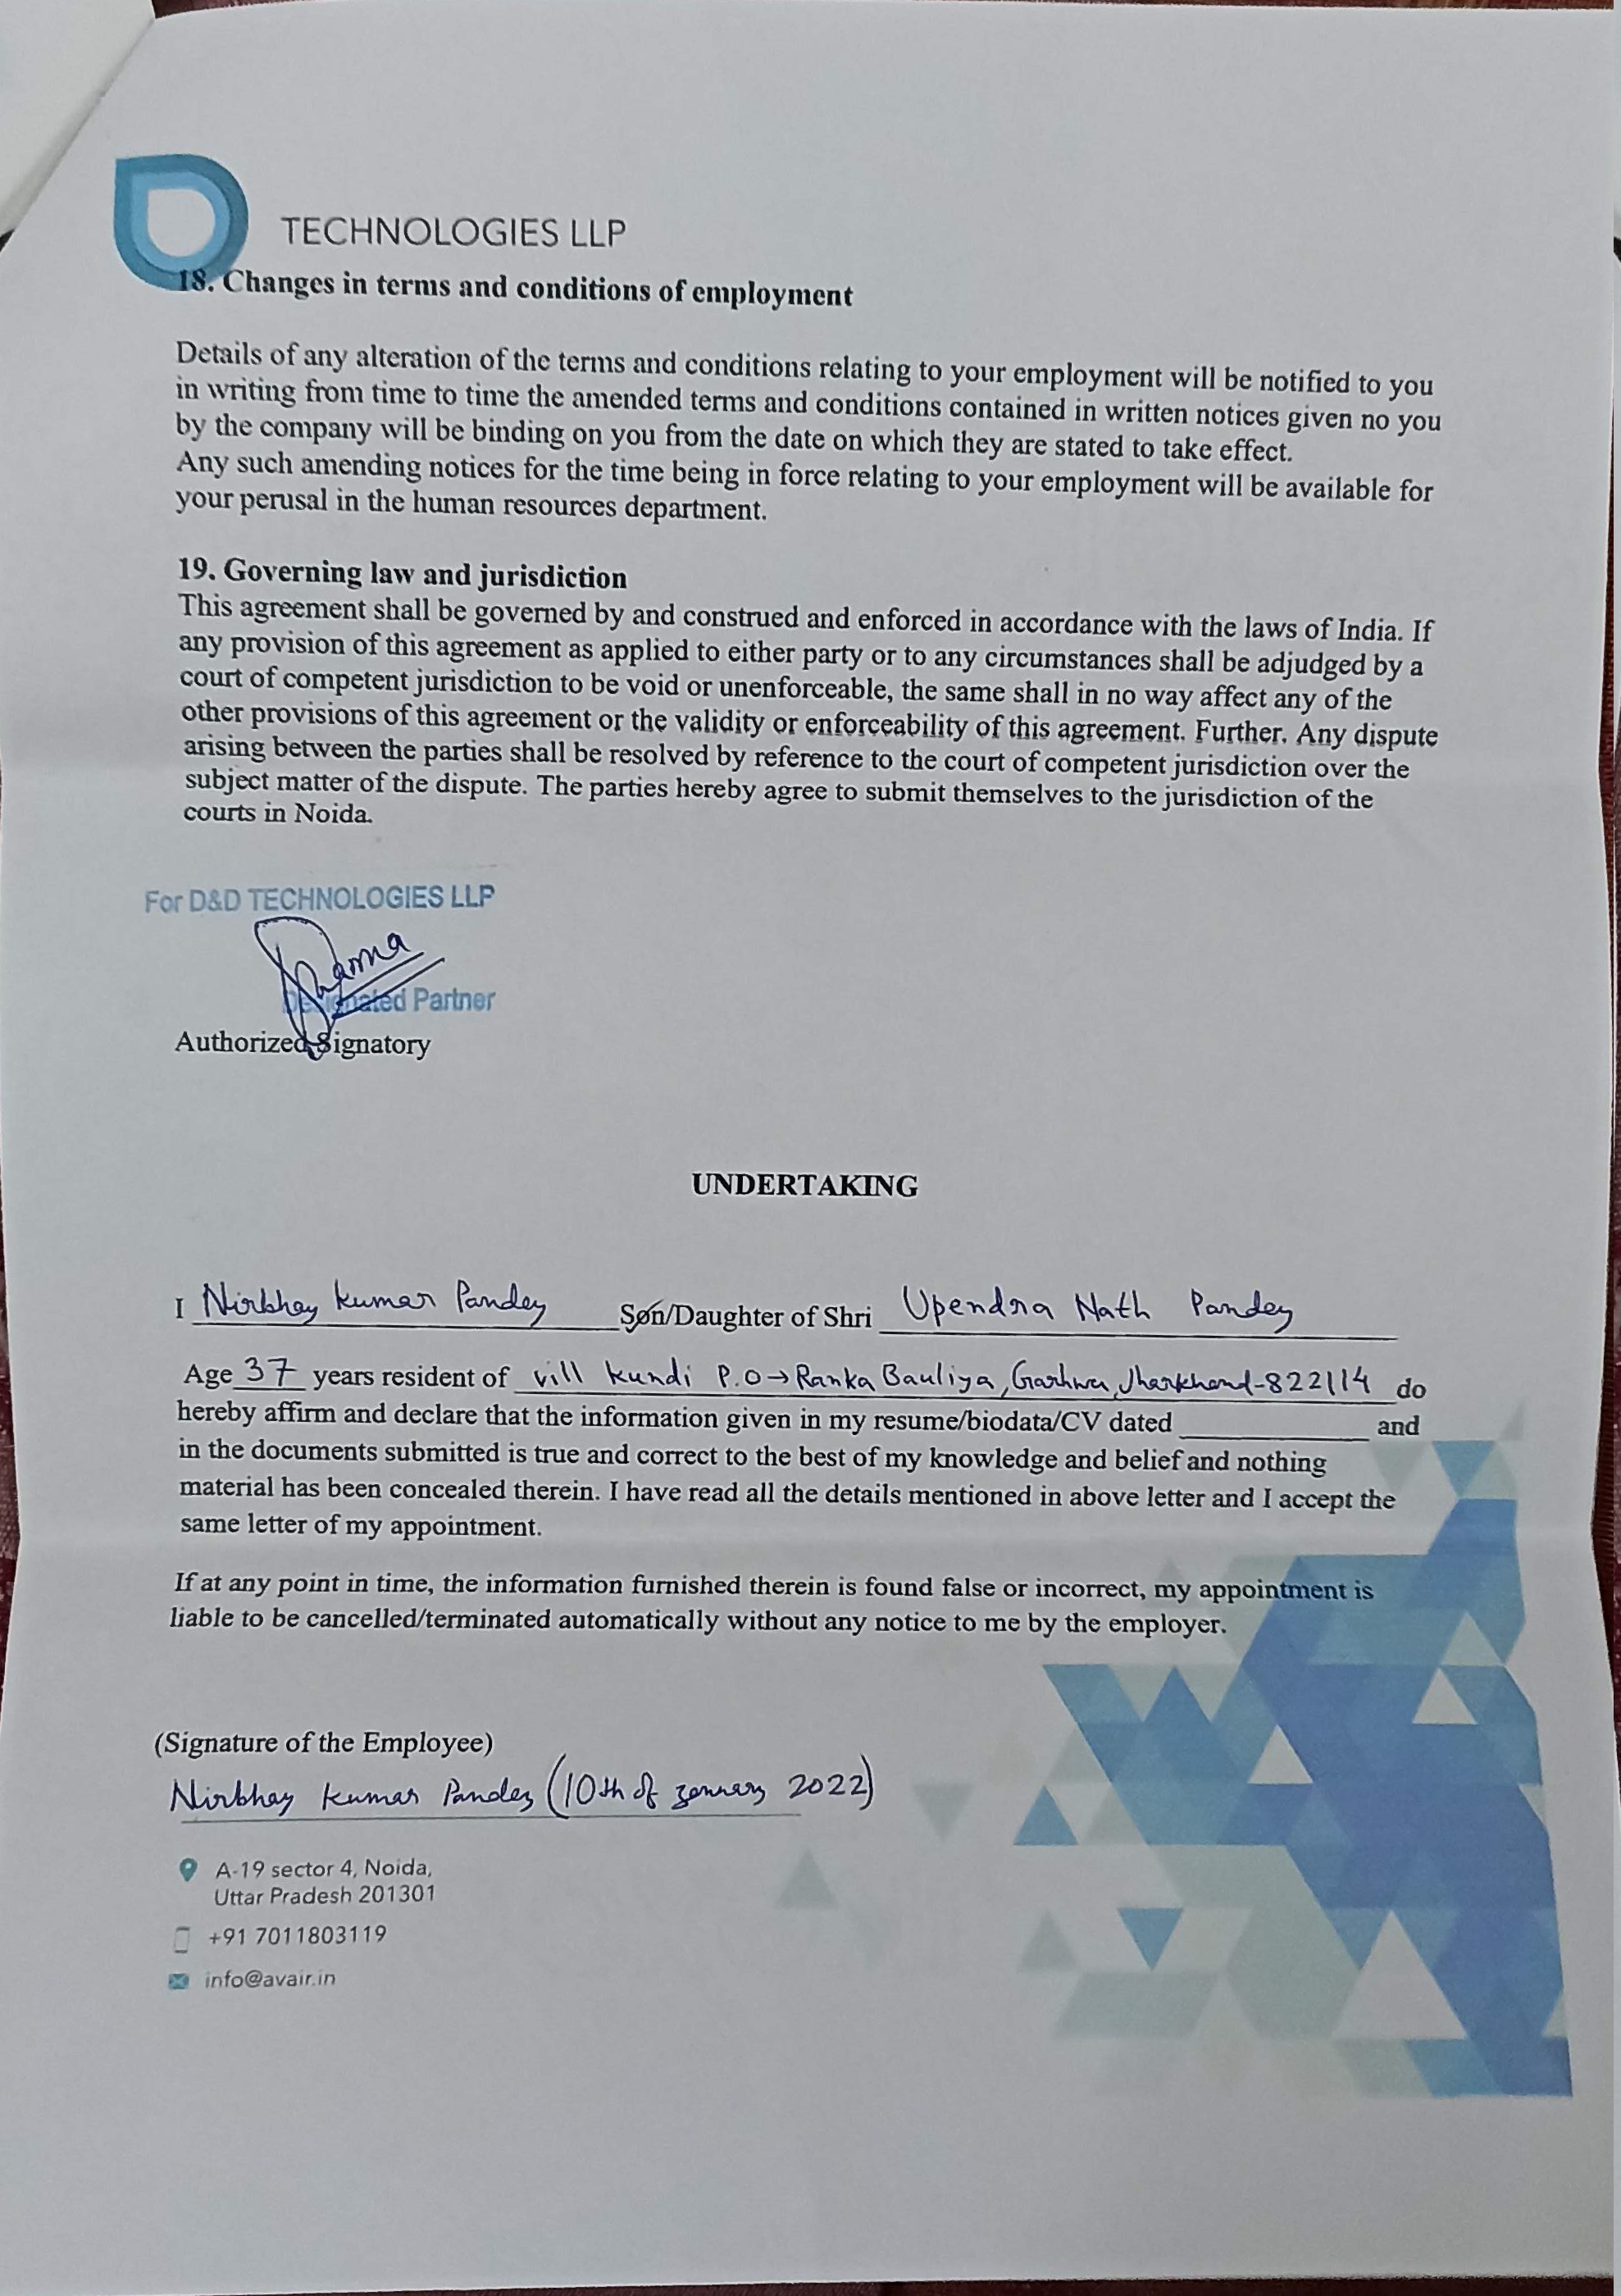 TECHNOLOGIES LLP
18. Changes in terms and conditions of employment
Details of any alteration of the terms and conditions relating to your employment will be notified to you
in writing from time to time the amended terms and conditions contained in written notices given no you
by the company will be binding on you from the date on which they are stated to take effect.
Any such amending notices for the time being in force relating to your employment will be available for
your perusal in the human resources department.
19. Governing law and jurisdiction
This agreement shall be governed by and construed and enforced in accordance with the laws of India. If
any provision of this agreement as applied to either party or to any circumstances shall be adjudged by a
court of competent jurisdiction to be void or unenforceable, the same shall in no way affect any of the
other provisions of this agreement or the validity or enforceability of this agreement. Further. Any dispute
arising between the parties shall be resolved by reference to the court of competent jurisdiction over the
subject matter of the dispute. The parties hereby agree to submit themselves to the jurisdiction of the
courts in Noida.
For D&D TECHNOLOGIES LLP
Designated Partner
Authorized Signatory
UNDERTAKING
I Nirbhay Kumar Pandey Son/Daughter of Shri Upendra Nath Pandey
Age 37 years resident of vill kundi P.O→Ranka Bauliya, Garhwa, Jharkhand-822114 do
hereby affirm and declare that the information given in my resume/biodata/CV dated ____________ and
in the documents submitted is true and correct to the best of my knowledge and belief and nothing
material has been concealed therein. I have read all the details mentioned in above letter and I accept the
same letter of my appointment.
If at any point in time, the information furnished therein is found false or incorrect, my appointment is
liable to be cancelled/terminated automatically without any notice to me by the employer.
(Signature of the Employee)
Nirbhay Kumar Pandey (10th of January 2022)
A-19 sector 4, Noida,
Uttar Pradesh 201301
+91 7011803119
info@avair.in